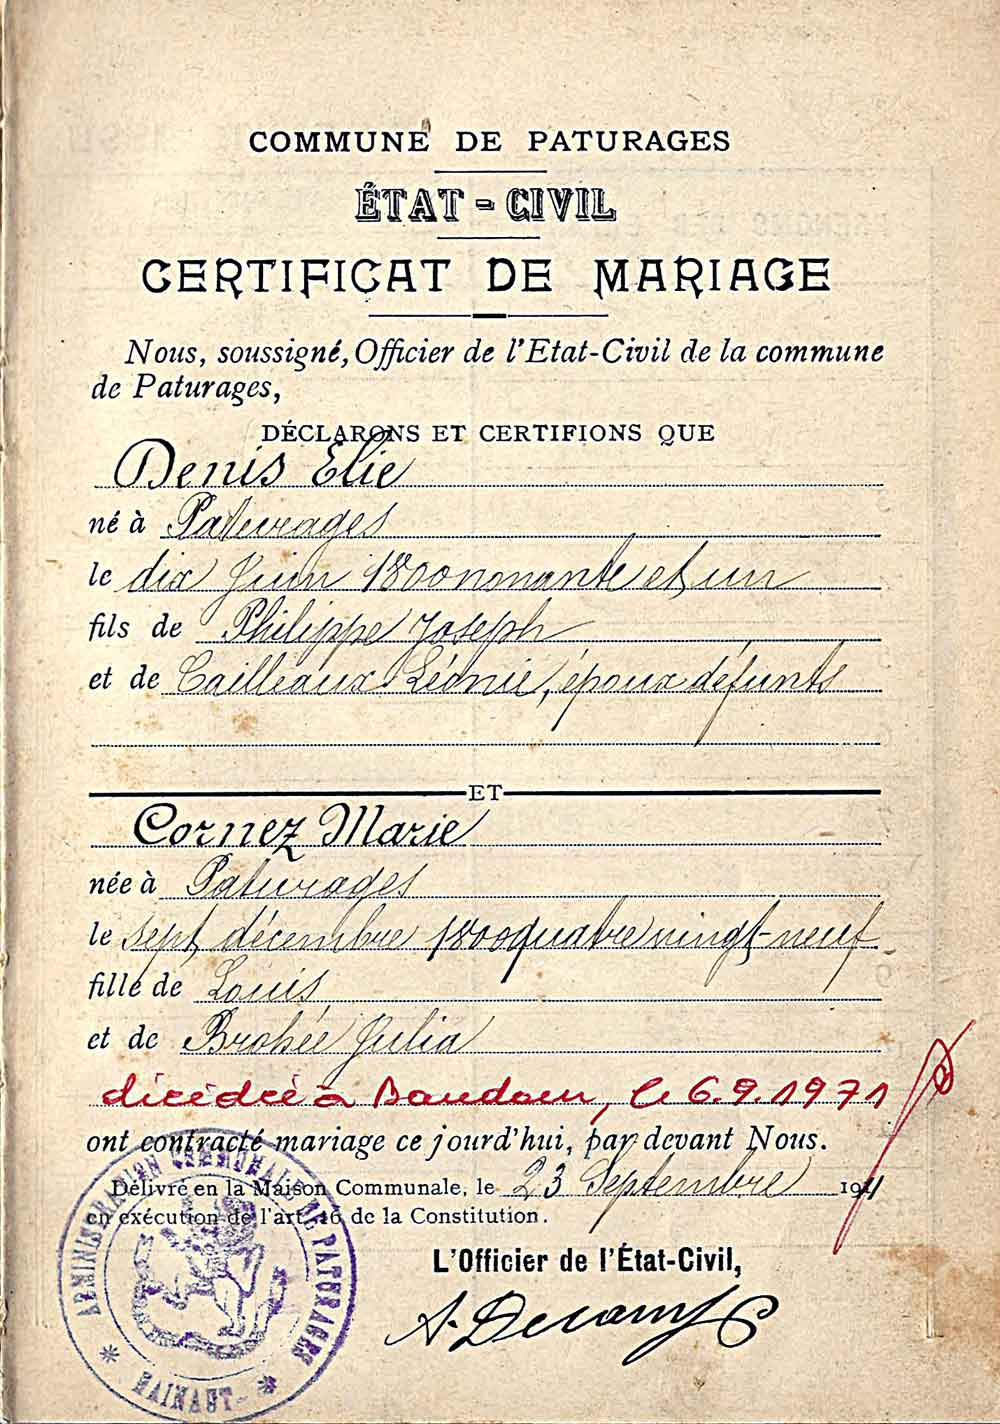 COMMUNE DE PATURAGES
ÉTAT-CIVIL
CERTIFICAT DE MARIAGE
Nous, soussigné, Officier de l'Etat-Civil de la commune
de Paturages,
DÉCLARONS ET CERTIFIONS QUE
Denis Elie
né à Paturages
le dix Juin 1800 nonante et un
fils de Philippe Joseph
et de Cailleaux Léonie, époux défunts
ET
Cornez Marie
née à Paturages
le sept décembre 1800 quatre vingt-neuf
fille de Louis
et de Brohée Julia
décédée à Baudour, le 6.9.1971
ont contracté mariage ce jourd'hui, par devant Nous.
Délivré en la Maison Communale, le 23 Septembre 1911
en exécution de l'art. 16 de la Constitution.
L'Officier de l'État-Civil,
ADMINISTRATION COMMUNALE DE PATURAGES
HAINAUT